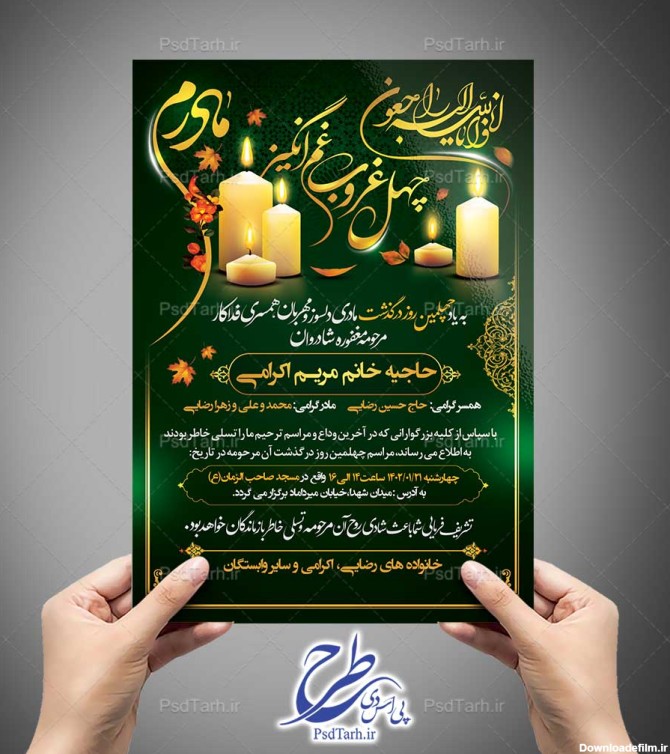 PsdTarh.ir PsdTarh.ir
انا لله و انا الیه راجعون
مادرم
چهل غروب غم انگیز
به یاد چهلمین روز درگذشت مادری دلسوز و مهربان همسری فداکار
مرحومه مغفوره شادروان
حاجیه خانم مریم اکرامی
همسر گرامی: حاج حسین رضایی مادر گرامی: محمد و علی و زهرا رضایی
با سپاس از کلیه بزرگوارانی که در آخرین وداع و مراسم ترحیم ما را تسلی خاطر بودند
به اطلاع می رساند، مراسم چهلمین روز درگذشت آن مرحومه در تاریخ:
چهارشنبه ۱۴۰۲/۰۱/۲۱ ساعت ۱۴ الی ۱۶ واقع در مسجد صاحب الزمان(ع)
به آدرس : میدان شهدا، خیابان میرداماد برگزار می گردد.
تشریف فرمایی شما باعث شادی روح آن مرحومه و تسلی خاطر بازماندگان خواهد بود.
خانواده های رضایی، اکرامی و سایر وابستگان
طرح
پی اس دی
PsdTarh.ir
PsdTarh.ir PsdTarh.ir
Downloadefilm.ir